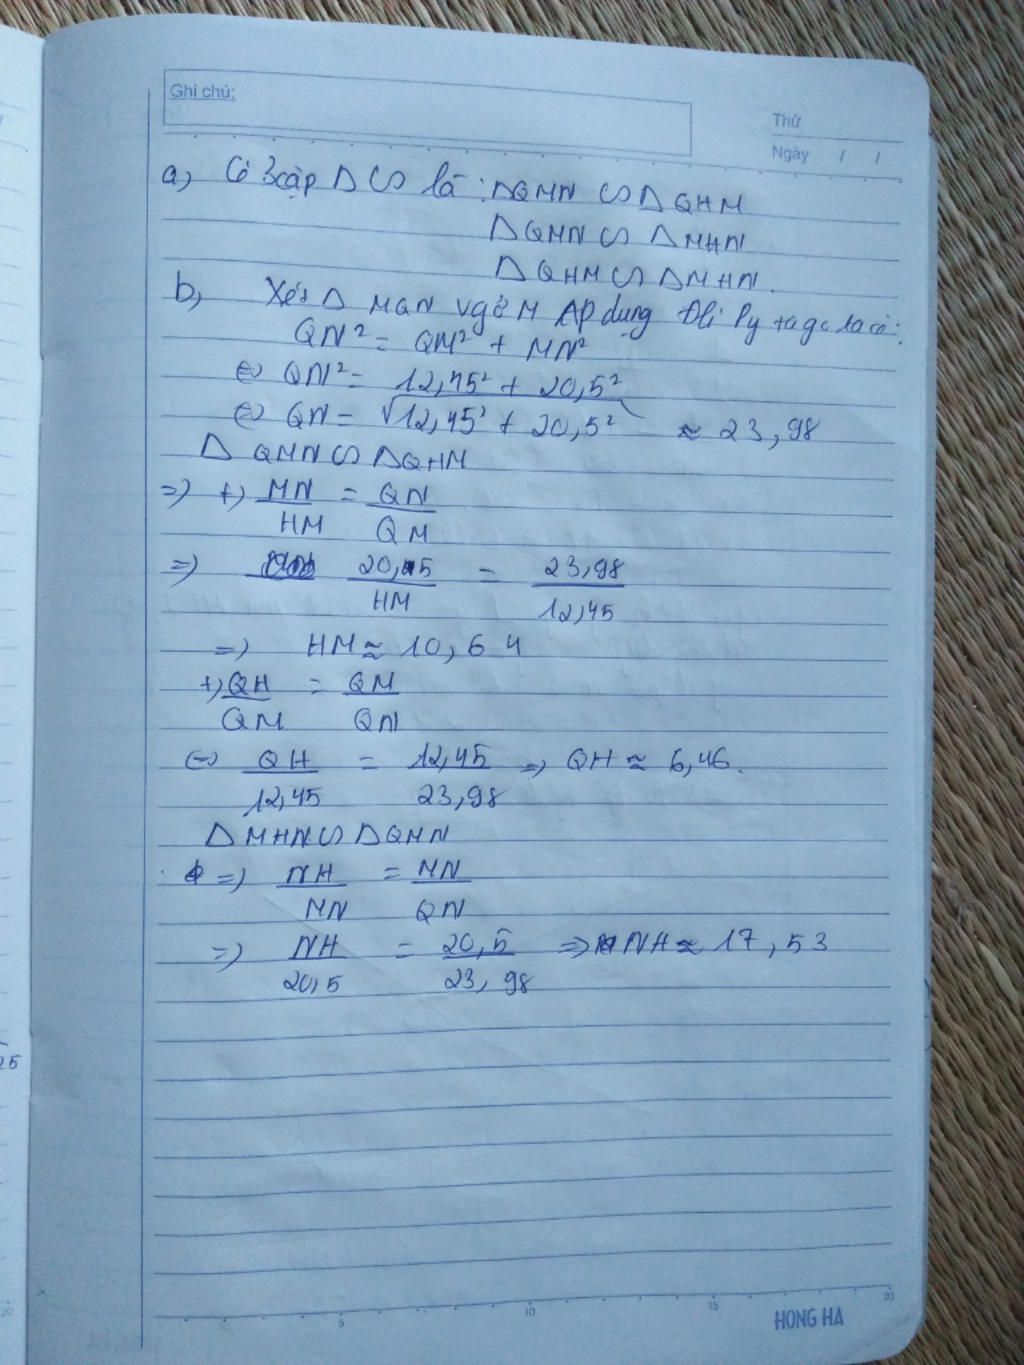 Ghi chú:
Thứ
Ngày / /
a, Có 3 cặp Δ ∽ là : ΔQMN ∽ ΔQHM
ΔQMN ∽ ΔMHN
ΔQHM ∽ ΔMHN.
b, Xét Δ MQN vg ở M Áp dụng Đlí Py ta go ta có:
QN² = QM² + MN²
⇔ QN² = 12,45² + 20,5²
⇔ QN = √12,45² + 20,5² ≈ 23,98
Δ QMN ∽ ΔQHM
=> +) MN/HM = QN/QM
=> 20,5/HM = 23,98/12,45
=> HM ≈ 10,64
+) QH/QM = QM/QN
⇔ QH/12,45 = 12,45/23,98 => QH ≈ 6,46.
ΔMHN ∽ ΔQMN
=> NH/MN = MN/QN
=> NH/20,5 = 20,5/23,98 => NH ≈ 17,53
25
5 10 15 20
HONG HA